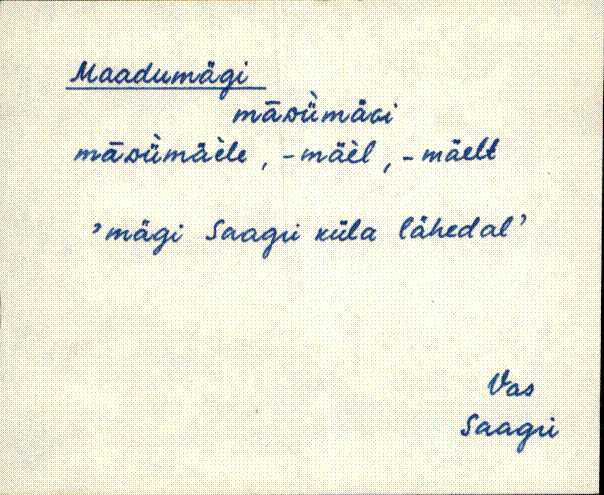 Maadumägi
māᴅǜmäɢi
māᴅǜmäèle, -mäèl, -mäelt
'mägi Saagri küla lähedal'
Vas
Saagri